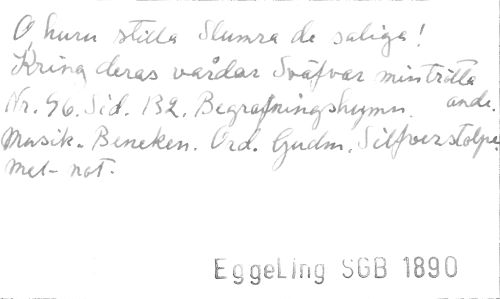 O, huru stilla Slumra de saliga!
Kring deras vårdar Sväfvar min trötta
Nr. 96. Sid. 132. Begrafningshymn. ande.
Musik. Beneken. Ord. Gudm. Silfverstolpe.
Mel-not.
EggeLing SGB 1890